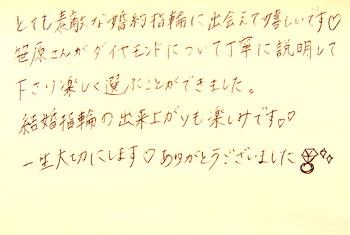 とても素敵な婚約指輪に出会えて嬉しいです♡
笹原さんがダイヤモンドについて丁寧に説明して
下さり楽しく選ぶことができました。
結婚指輪の出来上がりも楽しみです♡♡
一生大切にします♡ありがとうございました